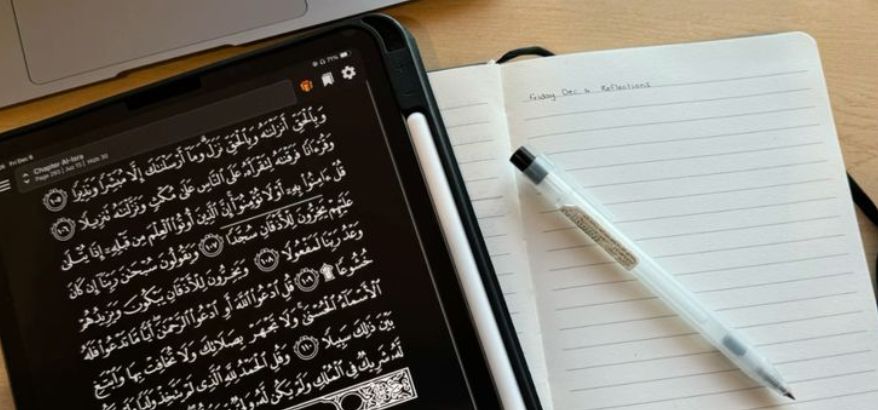 71%
Fri Dec 6
Chapter Al-Isra
Page 293 | Juz 15 | Hizb 30
وَبِالْحَقِّ أَنزَلْنَٰهُ وَبِالْحَقِّ نَزَلَ وَمَا أَرْسَلْنَٰكَ إِلَّا مُبَشِّرًا وَنَذِيرًا ١٠٥
وَقُرْءَانًا فَرَقْنَٰهُ لِتَقْرَأَهُ عَلَى النَّاسِ عَلَىٰ مُكْثٍ وَنَزَّلْنَٰهُ تَنزِيلًا ١٠٦
قُلْ ءَامِنُوا بِهِۦ أَوْ لَا تُؤْمِنُوا إِنَّ الَّذِينَ أُوتُوا الْعِلْمَ مِن قَبْلِهِۦ إِذَا يُتْلَىٰ
عَلَيْهِمْ يَخِرُّونَ لِلْأَذْقَانِ سُجَّدًا ١٠٧ وَيَقُولُونَ سُبْحَٰنَ رَبِّنَا إِن كَانَ
وَعْدُ رَبِّنَا لَمَفْعُولًا ١٠٨ وَيَخِرُّونَ لِلْأَذْقَانِ يَبْكُونَ وَيَزِيدُهُمْ
خُشُوعًا ۩ ١٠٩ قُلِ ادْعُوا اللَّهَ أَوِ ادْعُوا الرَّحْمَٰنَ أَيًّا مَّا تَدْعُوا فَلَهُ
الْأَسْمَاءُ الْحُسْنَىٰ وَلَا تَجْهَرْ بِصَلَاتِكَ وَلَا تُخَافِتْ بِهَا وَابْتَغِ
بَيْنَ ذَٰلِكَ سَبِيلًا ١١٠ وَقُلِ الْحَمْدُ لِلَّهِ الَّذِي لَمْ يَتَّخِذْ وَلَدًا وَلَمْ يَكُن
لَّهُ شَرِيكٌ فِي الْمُلْكِ وَلَمْ يَكُن لَّهُ وَلِيٌّ
Friday Dec 6 Reflections